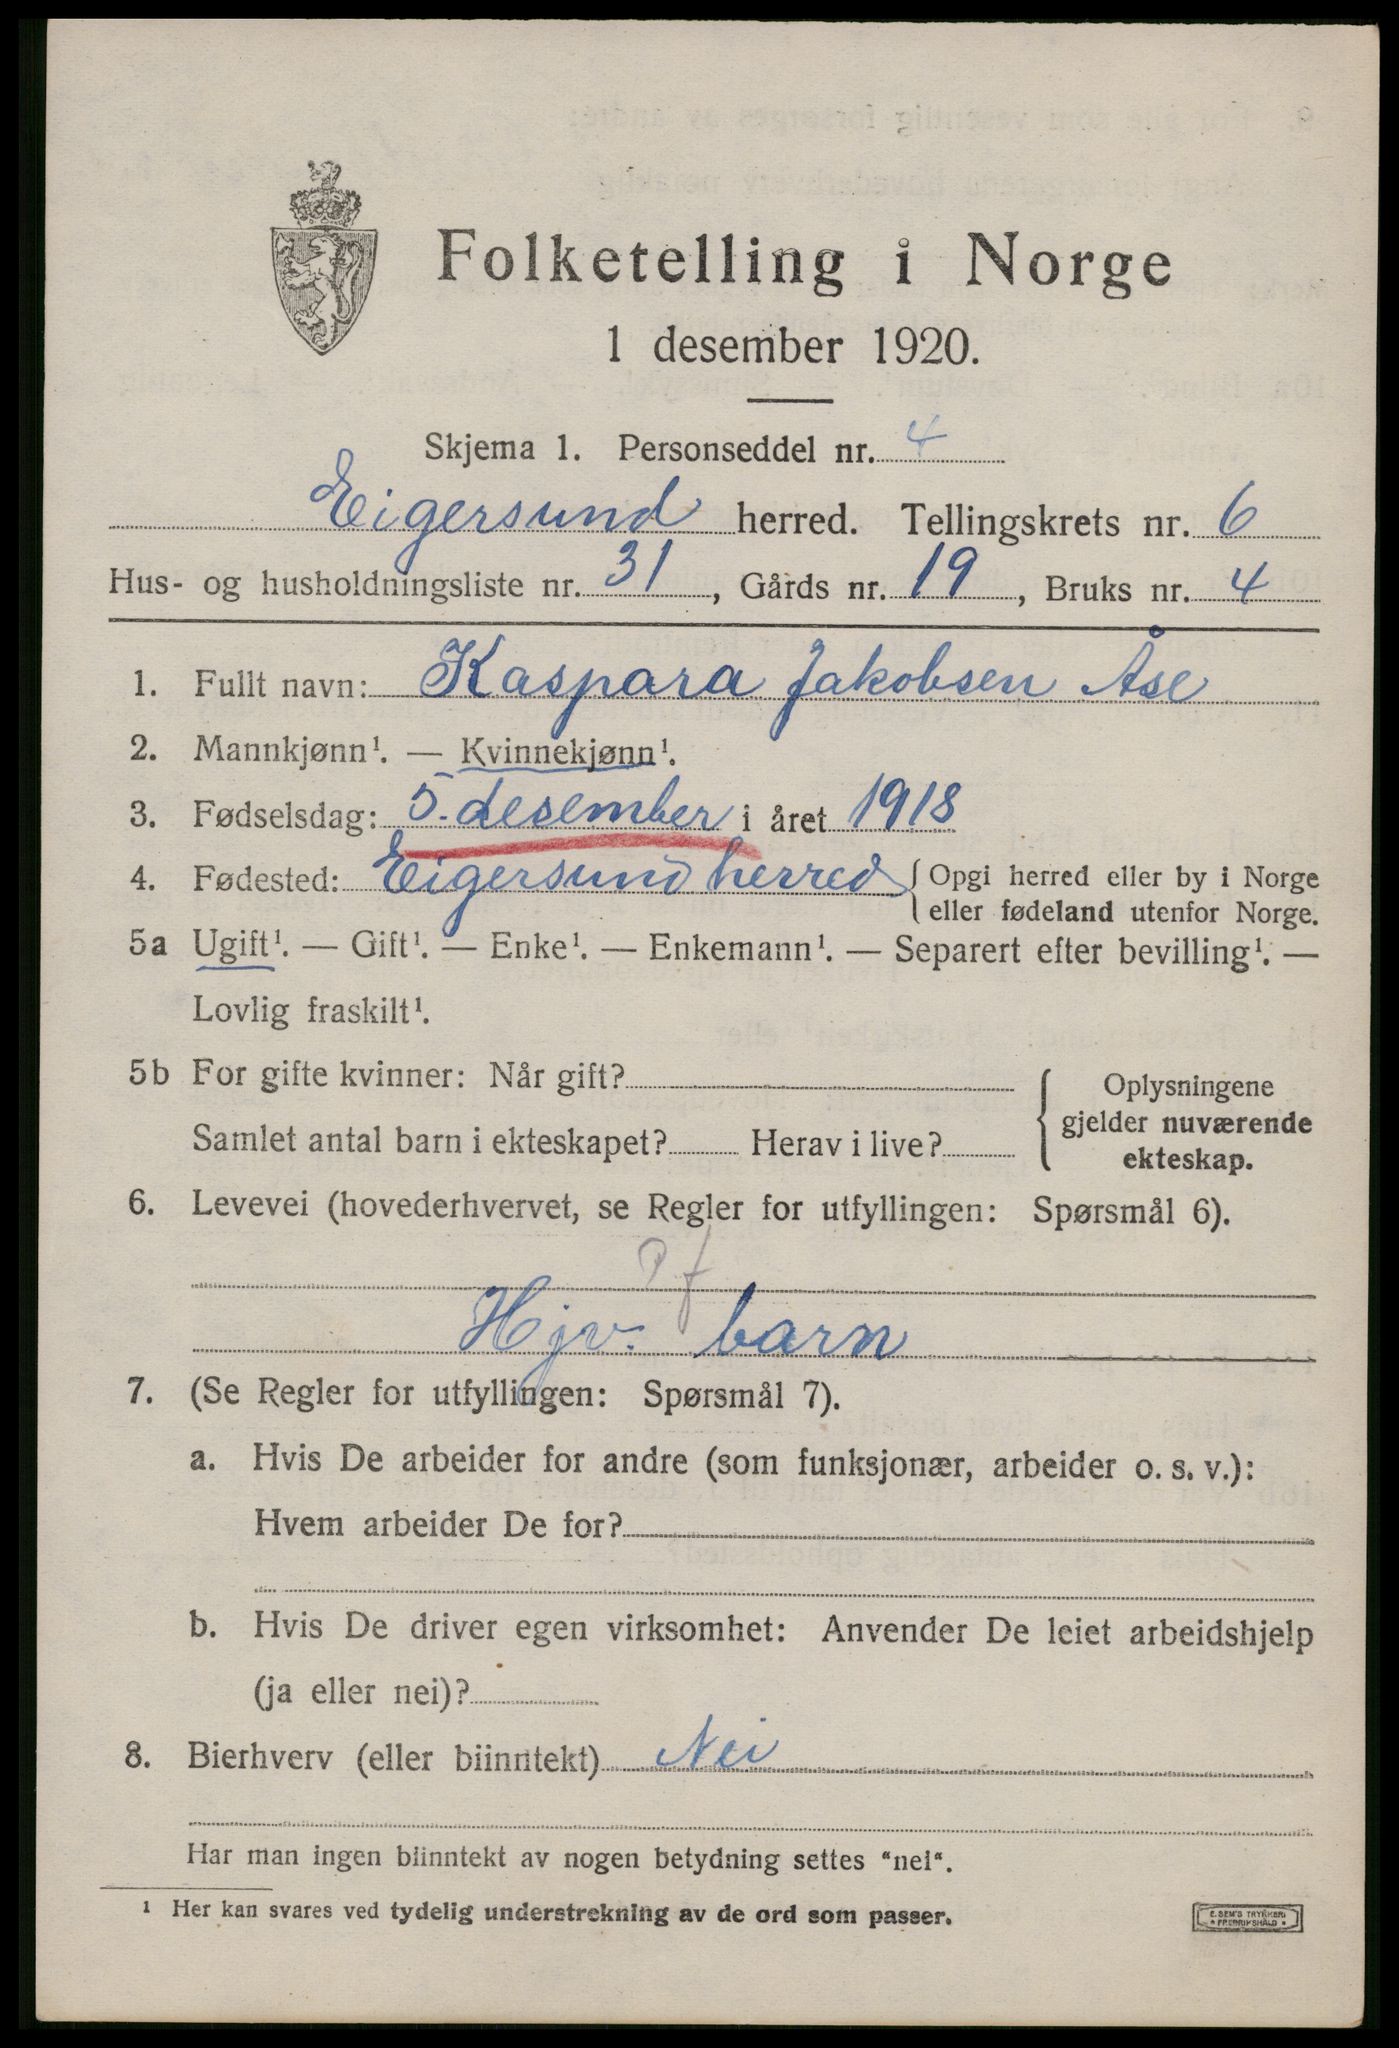 Folketelling i Norge
1 desember 1920.
Skjema 1. Personseddel nr. 4
Eigersund herred. Tellingskrets nr. 6
Hus- og husholdningsliste nr. 31, Gårds nr. 19, Bruks nr. 4
1. Fullt navn: Kaspara Jakobsen Åse
2. Mannkjønn¹. — Kvinnekjønn¹.
3. Fødselsdag: 5. desember i året 1918
4. Fødested: Eigersund herred { Opgi herred eller by i Norge
eller fødeland utenfor Norge.
5a Ugift¹. — Gift¹. — Enke¹. — Enkemann¹. — Separert efter bevilling¹. —
Lovlig fraskilt¹.
5b For gifte kvinner: Når gift?
Samlet antal barn i ekteskapet? Herav i live?
Oplysningene
gjelder nuværende
ekteskap.
6. Levevei (hovederhvervet, se Regler for utfyllingen: Spørsmål 6).
Hjv. barn
7. (Se Regler for utfyllingen: Spørsmål 7).
a. Hvis De arbeider for andre (som funksjonær, arbeider o. s. v.):
Hvem arbeider De for?
b. Hvis De driver egen virksomhet: Anvender De leiet arbeidshjelp
(ja eller nei)?
8. Bierhverv (eller biinntekt) Nei
Har man ingen biinntekt av nogen betydning settes "nei".
¹ Her kan svares ved tydelig understrekning av de ord som passer.
E. SEM'S TRYKKERI
* FREDRIKSHALD *